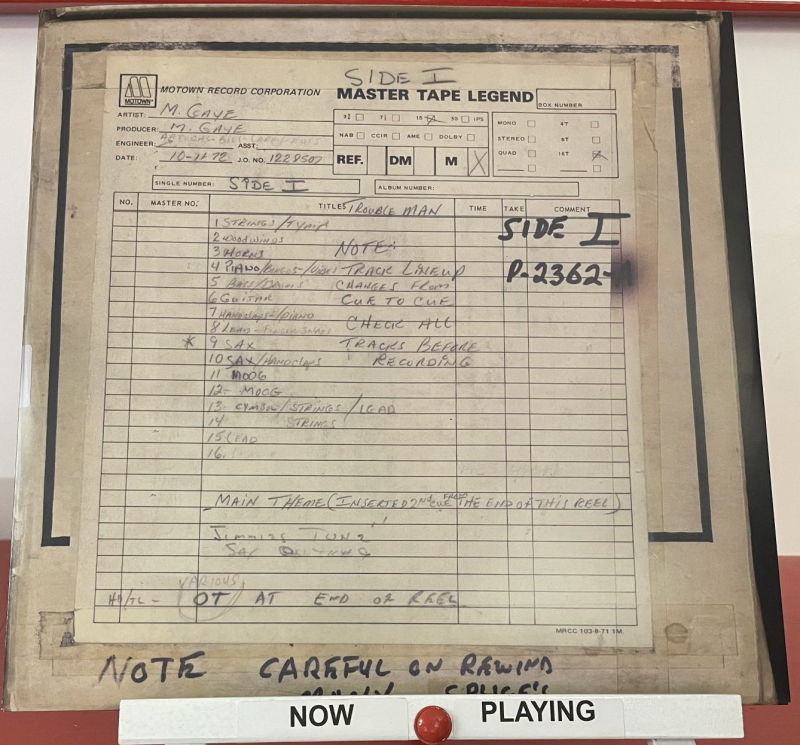 SIDE I
MOTOWN
MOTOWN RECORD CORPORATION
MASTER TAPE LEGEND
BOX NUMBER
ARTIST: M. GAYE
PRODUCER: M. GAYE
ENGINEER: ASST:
DATE: J.O. NO. 1228507
3¾ 7½ 15 30 IPS
NAB CCIR AME DOLBY
REF. DM M X
MONO 4T
STEREO 8T
QUAD 16T
SINGLE NUMBER: SIDE I
ALBUM NUMBER:
NO. MASTER NO. TITLES TROUBLE MAN TIME TAKE COMMENT
1 STRINGS/TYMP
SIDE I
2 WOODWINDS
NOTE:
3 HORNS
4 PIANO/ TRACK LINEUP
P-2362-A
5 BASS/DRUMS CHANGES FROM
6 GUITAR CUE TO CUE
7 HANDCLAPS-/PIANO
8 LEAD - FINGER SNAPS CHECK ALL
* 9 SAX TRACKS BEFORE
10 SAX/HANDCLAPS RECORDING
11 MOOG
12- MOOG
13- CYMBOL/STRINGS/LEAD
14 STRINGS
15 LEAD
16.
MAIN THEME (INSERTED 2ND CUE FROM THE END OF THIS REEL)
VARIOUS
OT AT END OF REEL
MRCC 103-8-71 1M
NOTE CAREFUL ON REWIND
MANY SPLICE'S
NOW PLAYING